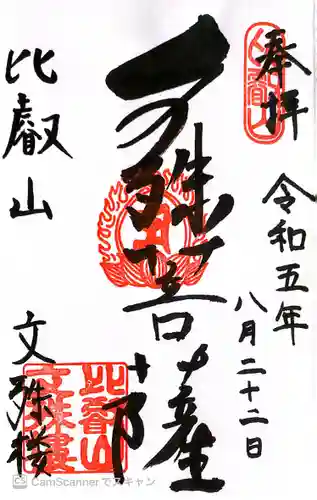 奉拝
令和五年
八月二十二日
文殊菩薩
比叡山
文殊楼
比叡山
文殊楼
CS CamScannerでスキャン